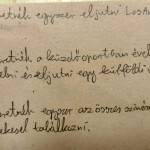 etnék egyszer eljutni Los An
etnék a küzdősportban évek
elni és eljutni egy külföldi v
etnék egyszer az összes színés
ekesel találkozni.